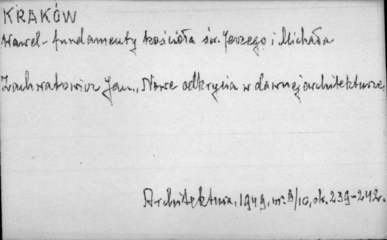 KRAKÓW
Wawel - fundamenty kościoła św. Jerzego i Michała
Zachwatowicz Jan, „Nowe odkrycia w dawnej architekturze,
Architektura, 1949, nr. 9/10, ok. 239-242.